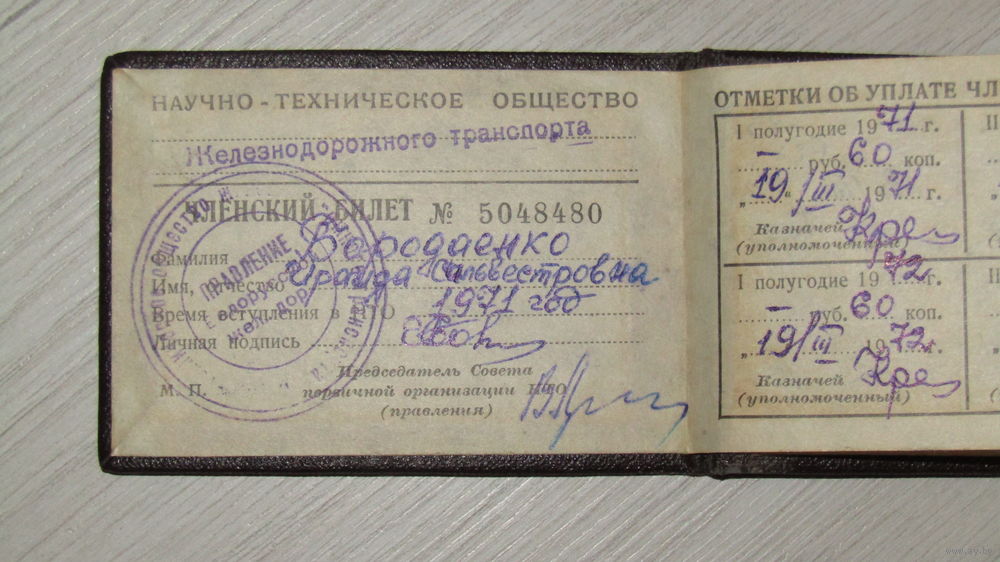 НАУЧНО-ТЕХНИЧЕСКОЕ ОБЩЕСТВО
Железнодорожного транспорта
ЧЛЕНСКИЙ БИЛЕТ № 5048480
Фамилия Бородаенко
Имя, отчество Ираида Сильвестровна
Время вступления в НТО 1971 год
Личная подпись
Председатель Совета
М. П. первичной организации НТО
(правления)
ПРАВЛЕНИЕ
Белорусской
ОТМЕТКИ ОБ УПЛАТЕ ЧЛ
I полугодие 1971 г.
– руб. 60 коп.
„19“ III 1971 г.
Казначей
(уполномоченный)
I полугодие 1972 г.
– руб. 60 коп.
„19“ III 1972 г.
Казначей
(уполномоченный)
II
www.ay.by